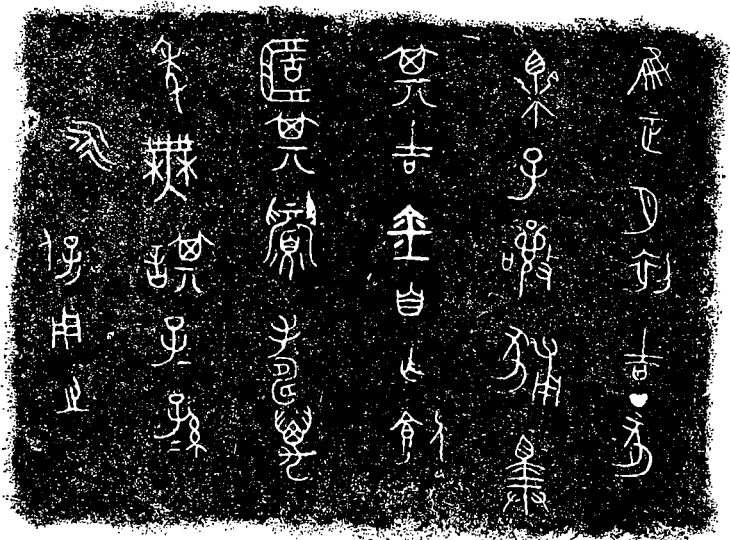 隹正月初吉丁亥
樂子嚷豧擇
其吉金自乍飤
簠其眉壽萬
年無諆子=孫=
永保用之